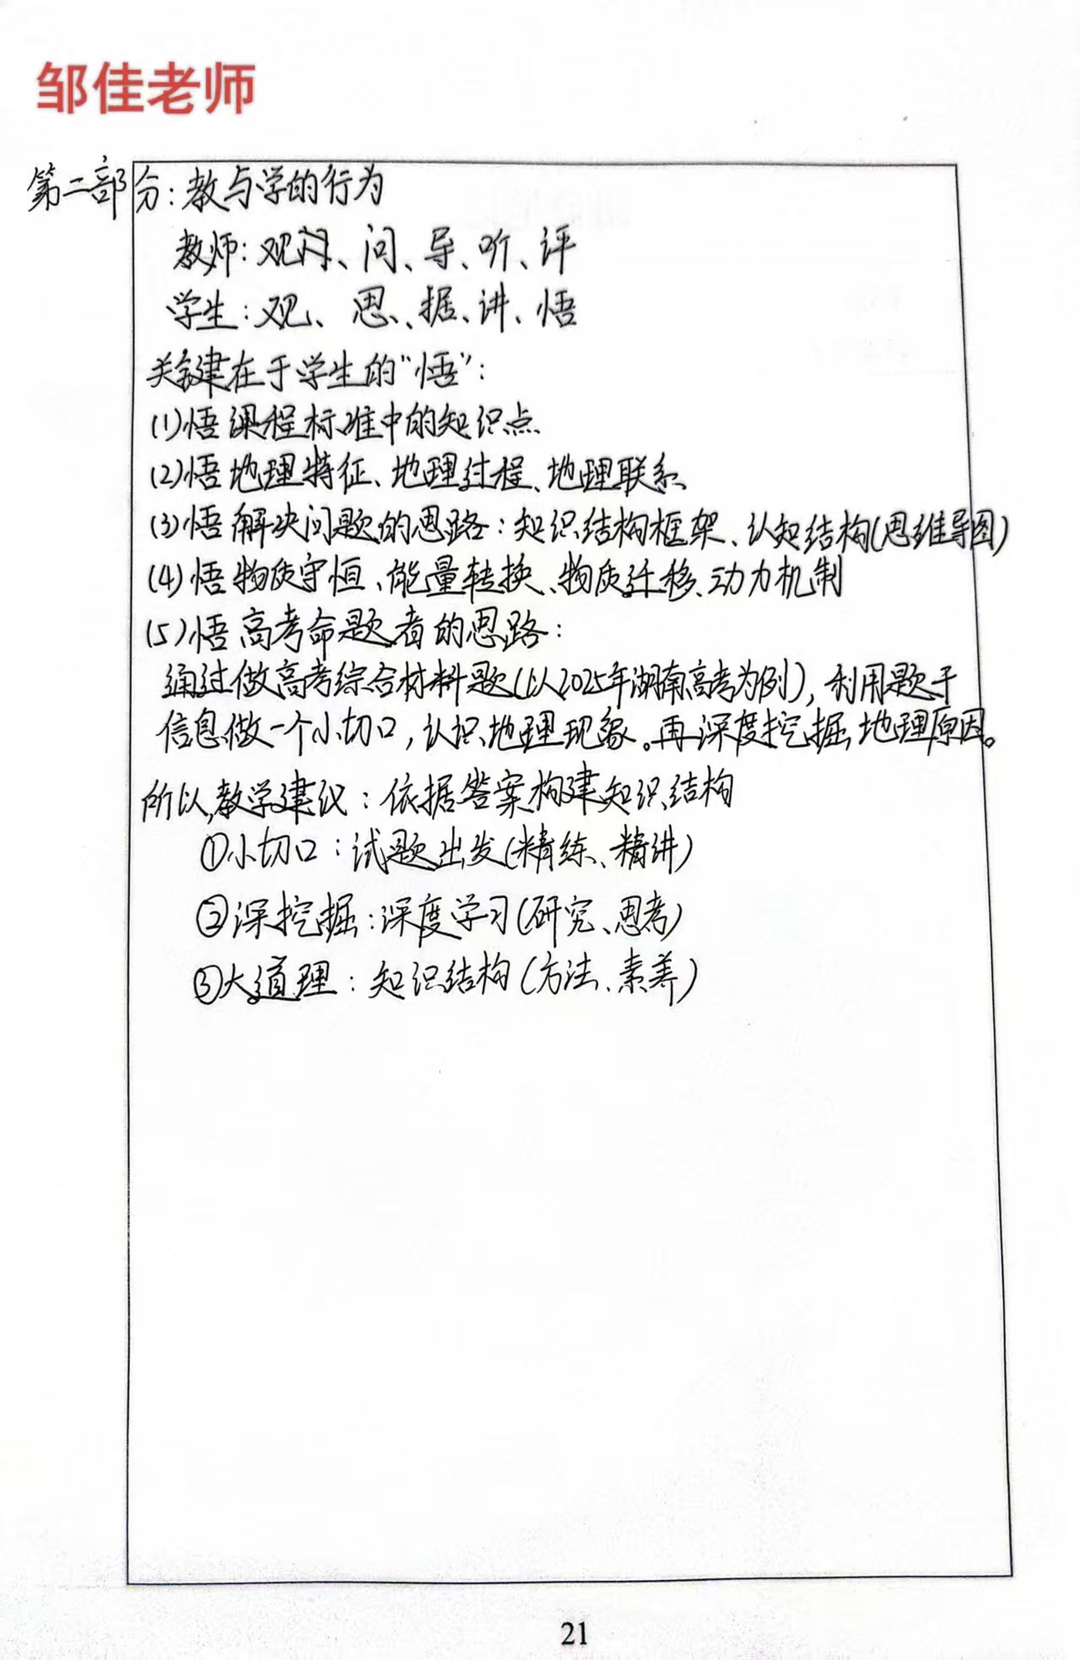 邹佳老师
第二部分：教与学的行为
教师：观、问、导、听、评
学生：观、思、据、讲、悟
关键在于学生的“悟”：
(1)悟课程标准中的知识点
(2)悟地理特征、地理过程、地理联系
(3)悟解决问题的思路：知识结构框架、认知结构(思维导图)
(4)悟物质守恒、能量转换、物质迁移、动力机制
(5)悟高考命题者的思路：
通过做高考综合材料题(以2025年湖南高考为例)，利用题干
信息做一个小切口，认识地理现象。再深度挖掘地理原因。
所以，教学建议：依据答案构建知识结构
①小切口：试题出发(精练、精讲)
②深挖掘：深度学习(研究、思考)
③大道理：知识结构(方法、素养)
21